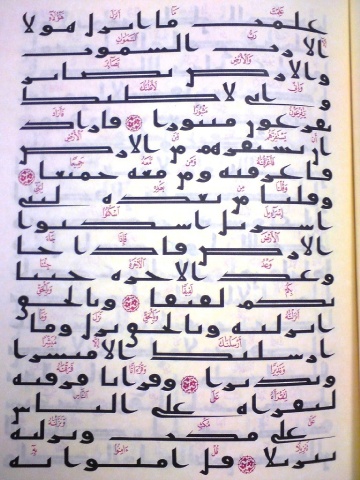 علمت ما انزل هولا
الا رب السموت
والارض بصاير
و انى لاظنك يا
فرعون مثبورا فاراد
ان يستفزهم من الارض
فاغرقنه ومن معه جميعا
وقلنا من بعده لبنى
اسريل اسكنوا
الارض فاذا جا
وعد الاخره جينا
بكم لفيفا وبالحق
انزلنه وبالحق نزل وما
ارسلنك الا مبشرا
ونذيرا وقرانا فرقنه
لتقراه على الناس
على مكث ونزلنه
تنزيلا قل امنوا به